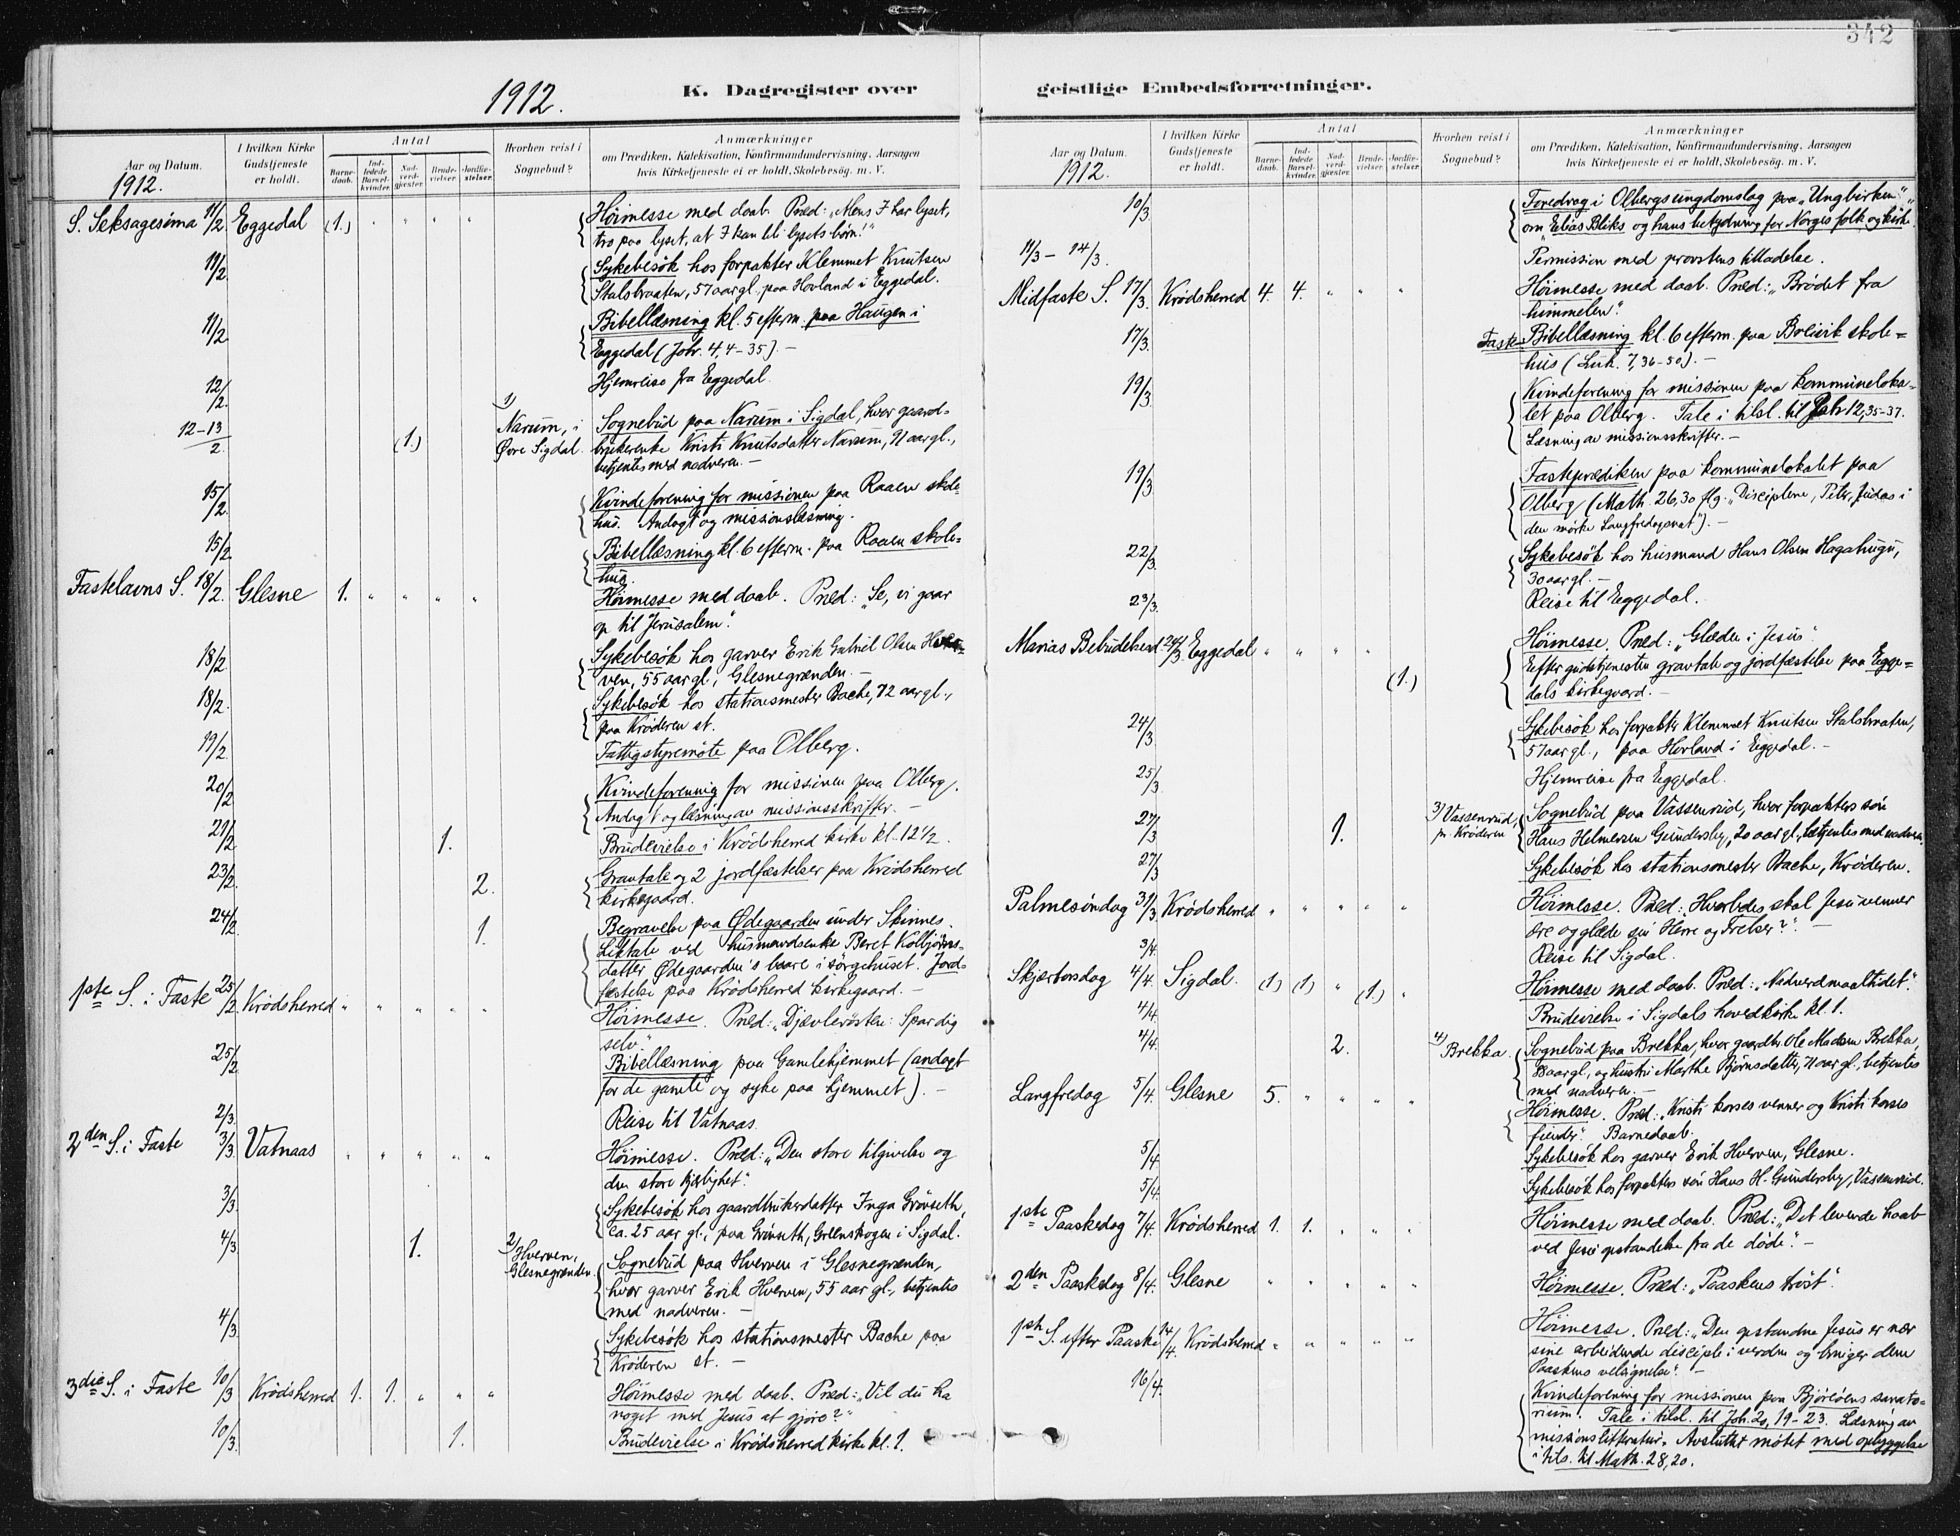 342
1912.
K. Dagregister over
geistlige Embedsforretninger.
Aar og Datum.
1912.
I hvilken Kirke Gudstjeneste er holdt.
Antal
Barne-daab.
Ind-ledede Barsel-kvinder.
Nad-verd-gjæster.
Brude-vielser.
Jordfæ-stelser.
Hvorhen reist i Sognebud?
Anmærkninger
om Prædiken, Katekisation, Konfirmandundervisning, Aarsagen
hvis Kirketjeneste ei er holdt, Skolebesøg. m. V.
S. Seksagesima 11/2. Eggedal (1.) " " " " Höimesse med daab. Præd: „Mens I har lyset,
tro paa lyset, at I kan bli lysets börn!"
11/2. Sykebesök hos forpakter Klemmet Knutsen
Stalsbraaten, 57 aar gl., paa Hovland i Eggedal.
11/2 Bibellæsning kl. 5 efterm. paa Haugen i
Eggedal (Joh. 4, 4-35). —
12/2. Hjemreise fra Eggedal.
12-13/2. (1.) 1) Narum, i Øvre Sigdal. Sognebud paa Narum i Sigdal, hvor gaard-
brukerenke Kristi Knutsdatter Narum, 91 aar gl.,
betjentes med nadveren. —
15/2. Kvindeforening for missionen paa Raaen skole-
hus. Andagt og missionslæsning.
15/2 Bibellæsning kl. 6 efterm. paa Raaen skole-
hus.
Fastelavns S. 18/2. Glesne 1. " " " " Höimesse med daab. Præd: „Se, vi gaar
op til Jerusalem".
18/2. Sykebesök hos garver Erik Gabriel Olsen Hver-
ven, 55 aar gl., i Glesnegrænden. —
18/2. Sykebesök hos stationsmester Bache, 72 aar gl.,
paa Krøderen st.
19/2. Fattigstyremöte paa Olberg.
20/2 Kvindeforening for missionen paa Olberg.
Andagt og læsning av missionsskrifter. —
21/2. 1. Brudevielse i Krødsherred kirke kl. 12 1/2.
23/2. 2. Gravtale og 2 jordfæstelser paa Krødsherred
kirkegaard.
24/2. 1. Begravelse paa Ødegaarden under Skinnes.
Liktale ved husmandsenke Beret Kolbjörns-
datter Ødegaarden's baare i sörgehuset. Jord-
fæstelse paa Krødsherred kirkegaard. —
1ste S. i Faste 25/2 Krødsherred " " " " " Höimesse. Præd: „Djævlerösten: Spar dig
selv."
25/2. Bibellæsning paa Gamlehjemmet (andagt
for de gamle og syke paa hjemmet). —
2/3. Reise til Vatnaas.
2den S. i Faste 3/3. Vatnaas " " " " " Höimesse. Præd: „Den store tilgivelse og
den store kjærlighet".
3/3. Sykebesök hos gaardbrukerdatter Inga Grönseth,
ca. 25 aar gl., paa Grönseth, Greenskogen i Sigdal.
4/3. 1. 2) Hverven, Glesnegrænden. Sognebud paa Hverven i Glesnegrænden,
hvor garver Erik Hverven, 55 aar gl., betjentes
med nadveren. —
4/3. Sykebesök hos stationsmester Bache paa
Krøderen st. —
3die S. i Faste 10/3 Krødsherred 1. 1. " " " Höimesse med daab. Præd: „Vil du ha
noget med Jesus at gjøre?"
10/3. 1. Brudevielse i Krødsherred kirke kl. 1.
Aar og Datum.
1912.
I hvilken Kirke Gudstjeneste er holdt.
Antal
Barne-daab.
Ind-ledede Barsel-kvinder.
Nad-verd-gjæster.
Brude-vielser.
Jordfæ-stelser.
Hvorhen reist i Sognebud?
Anmærkninger
om Prædiken, Katekisation, Konfirmandundervisning, Aarsagen
hvis Kirketjeneste ei er holdt, Skolebesøg. m. V.
10/3. Foredrag i Olbergs ungdomslag paa „Ungbirken"
om „Elias Bliks og hans betydning for Norges folk og kirke".
11/3 – 14/3. Permission med provstens tilladelse.
Midfaste S. 17/3. Krødsherred 4. 4. " " " Höimesse med daab. Præd: „Brødet fra
himmelen".
17/3. Faste- Bibellæsning kl. 6 efterm. paa Bolvik skole-
hus (Luk. 7, 36-50). —
19/3. Kvindeforening for missionen paa kommuneloka-
let paa Olberg. Tale i tilsl. til Joh. 12, 35-37.
Læsning av missionsskrifter. —
19/3. Fasteprædiken paa kommunelokalet paa
Olberg (Math. 26, 30 flg. „Disciplene, Peter, Judas i
den mörke Langfredagsnat"). —
22/3. Sykebesök hos husmand Hans Olsen Hagahugu,
30 aar gl. —
23/3. Reise til Eggedal.
Marias Bebudelsesd. 24/3. Eggedal " " " " Höimesse. Præd: „Glæden i Jesus".
(1.) Efter gudstjenesten gravtale og jordfæstelse paa Egge-
dals kirkegaard. —
24/3. Sykebesök hos forpakter Klemmet Knutsen Stalsbraaten,
57 aar gl., paa Hovland i Eggedal. —
25/3. Hjemreise fra Eggedal.
27/3 1. 3) Vassenrud, pr. Krøderen Sognebud paa Vassenrud, hvor forpakters sön
Hans Helmersen Gundersby, 20 aar gl., betjentes med nadveren.
27/3 Sykebesök hos stationsmester Bache, Krøderen.
Palmesöndag 31/3 Krødsherred " " " " " Höimesse. Præd: „Hvorledes skal Jesu venner
ære og glæde sin Herre og Frelser?". —
3/4. Reise til Sigdal.
Skjærtorsdag 4/4. Sigdal. (1) (1) " (1.) " Höimesse med daab. Præd: „Nadverdmaaltidet".
4/4. Brudevielse i Sigdals hovedkirke kl. 1.
4/4. 2. 4) Brekka. Sognebud paa Brekka, hvor gaardbr. Ole Madsen Brekka,
88 aar gl., og hustru Marthe Björnsdatter, 71 aar gl., betjentes
med nadveren. —
Langfredag 5/4. Glesne 5. " " " " Höimesse. Præd: „Kristi korses venner og Kristi korses
fiender". Barnedaab.
5/4. Sykebesök hos garver Erik Hverven, Glesne.
5/4. Sykebesök hos forpakters sön Hans H. Gundersby, Vassenrud.
1ste Paaskedag 7/4. Krødsherred 1. 1. " " " Höimesse med daab. Præd: „Det levende haab
ved Jesu opstandelse fra de døde". —
2den Paaskedag 8/4. Glesne " " " " " Höimesse. Præd: „Paaskens tröst".
1ste S. efter Paaske 14/4. Krødsherred " " " " " Höimesse. Præd: „Den opstandne Jesus er nær
sine arbeidende disciple i verden og bringer dem
Paaskens velsignelse". —
16/4. Kvindeforening for missionen paa Björeöens sanato-
rium. Tale i tilsl. til Joh. 20, 19-23. Læsning av
missionslitteratur. Avsluttet mötet med opbyggelse
i tils. til Math. 28, 20.